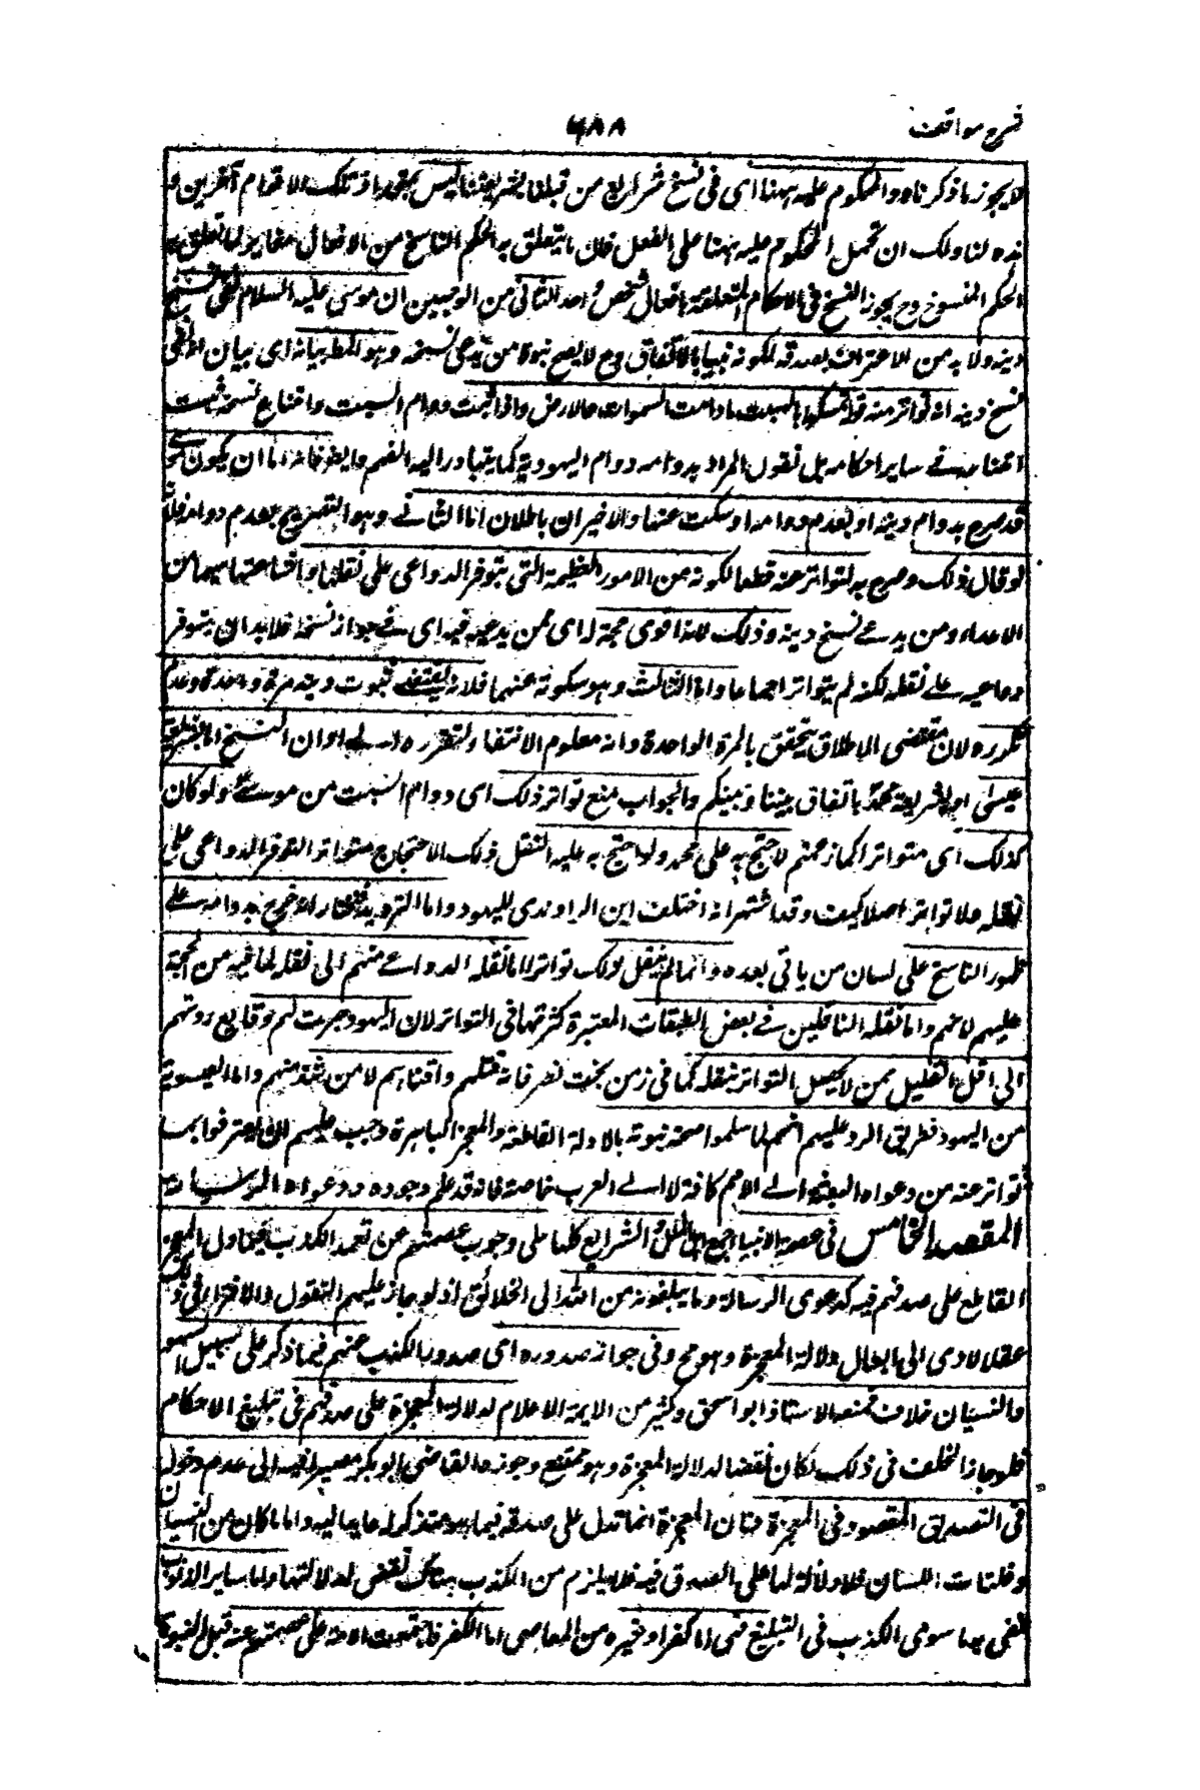 شرح مواقف
٦٨٨
لا يجوز ما ذكرناه والمحكوم عليه ههنا اى فى نسخ شرايع من قبلنا بشريعتنا ليس بمقهم اذ تلك الاقوام آخرين و
هذه لنا ولك ان تحمل المحكوم عليه ههنا على الفعل فان ما يتعلق به الحكم الناسخ من الافعال مغاير لما تعلق به
الحكم المنسوخ وح يجوز النسخ فى الاحكام المتعلقة بافعال شخص واحد الثانى من الوجهين ان موسى عليه السلام نفى نسخ
دينه ولا بد من الاعتراف بصدقه لكونه نبيا بالاتفاق وح لا يصح نبوة من يدعى نسخه وهو المط بيانه اى بيان انه نفى
نسخ دينه انه تواتر منه قوله تمسكوا بالسبت ما دامت السموات والارض واذا ثبت دوام السبت وامتناع نسخه ثبت
امتناعه فى ساير احكامه بل نقول المراد بدوامه دوام اليهودية كما يتبادر اليه الفهم وايضا فانه اما ان يكون
قد صرح بدوام دينه او بعدم دوامه او سكت عنها والاخيران باطلان اما الثانى وهو التصريح بعدم دوامه فلانه
لو قال ذلك وصرح به لتواتر عنه قطعا لكونه من الامور العظيمة التى يتوفر الدواعى على نقلها واشاعتها سيما من
الاعداء ومن يدعى نسخ دينه وذلك لانه اقوى حجة له اى لمن يدعيه فيه اى فى جواز نسخه فلا بد ان يتوفر
دواعيه على نقله لكنه لم يتواتر اجماعا واما الثالث وهو سكوته عنهما فلانه يقتضى ثبوت دينه مرة واحدة وعدم
تكرره لان مقتضى الاطلاق يتحقق بالمرة الواحدة وانه معلوم الانتفاء لتقرره الى اوان النسخ اما بشريعة
عيسى او بشريعة محمد باتفاق بيننا وبينكم والجواب منع تواتر ذلك اى دوام السبت من موسى ولو كان
كذلك اى متواترا كما زعمتم لاحتج به على محمد ولو احتج به عليه لنقل ذلك الاحتجاج متواترا لتوفر الدواعى على
نقله ولا تواتر اصلا كيف وقد اشتهر انه اختلقه ابن الراوندى لليهود واما الترديد فنختار انه صرح بدوامه على
ظهور الناسخ على لسان من ياتى بعده وانما لم ينقل ذلك تواترا اما لقلة الدواعى منهم الى نقله لما فيه من الحجة
عليهم لا لهم واما لقلة الناقلين فى بعض الطبقات المعتبرة كثرتها فى التواتر لان اليهود جرت لهم وقايع ردتهم
الى اقل القليل ممن لا يحصل التواتر بنقله كما فى زمن بخت نصر فانه قتلهم وافناهم لا من شذ منهم واما العيسوية
من اليهود فطريق الرد عليهم انهم لما سلموا صحة نبوته بالادلة القاطعة والمعجزة الباهرة وجب عليهم ان يعترفوا بما
تواتر عنه من دعواه البعثة الى الامم كافة لا الى العرب خاصة فانه قد علم وجوده ودعواه الرسالة
المقصد الخامس فى عصمة الانبياء اجمع اهل الملل والشرايع كلها على وجوب عصمتهم عن تعمد الكذب فيما دل المعجز
القاطع على صدقهم فيه كدعوى الرسالة وما يبلغونه من الله الى الخلائق اذ لو جاز عليهم التقول والافتراء فى ذلك
عقلا لادى الى ابطال دلالة المعجزة وهو مح وفى جواز صدوره اى صدور الكذب عنهم فيما ذكر على سبيل السهو
والنسيان خلاف فمنعه الاستاذ ابو اسحق وكثير من الايمة الاعلام لدلالة المعجزة على صدقهم فى تبليغ الاحكام
فلو جاز الخلف فى ذلك لكان نقضا لدلالة المعجزة وهو ممتنع وجوزه القاضى ابو بكر مصيرا منه الى عدم دخوله
فى التصديق المقصود فى المعجزة فان المعجزة انما تدل على صدقه فيما هو متذكر له عامد اليه واما ما كان من النسيان
وفلتات اللسان فلا دلالة لها على الصدق فيه فلا يلزم من الكذب هناك نقض لدلالتها واما ساير الذنوب
فهى ما سوى الكذب فى التبليغ فهى اما كفر او غيره من المعاصى اما الكفر فاجتمعت الامة على عصمتهم عنه قبل النبوة